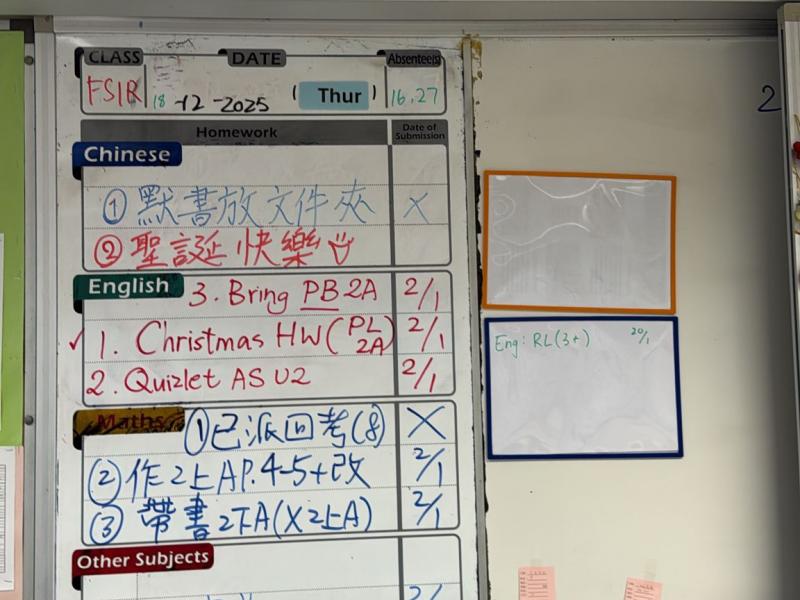 CLASS DATE Absentee(s)
18 -12 -2025 ( Thur ) 16,27
Homework Date of Submission
Chinese
① 默書放文件夾 X
② 聖誕快樂
English 3. Bring PB 2A 2/1
✓ 1. Christmas HW (PL 2A) 2/1
2. Quizlet AS U2 2/1
Maths ① 已派回考(8) X
② 作2上A P.4-5+改 2/1
③ 帶書2下A(X2上A) 2/1
Other Subjects
2
Eng: RL(3+) 20/1